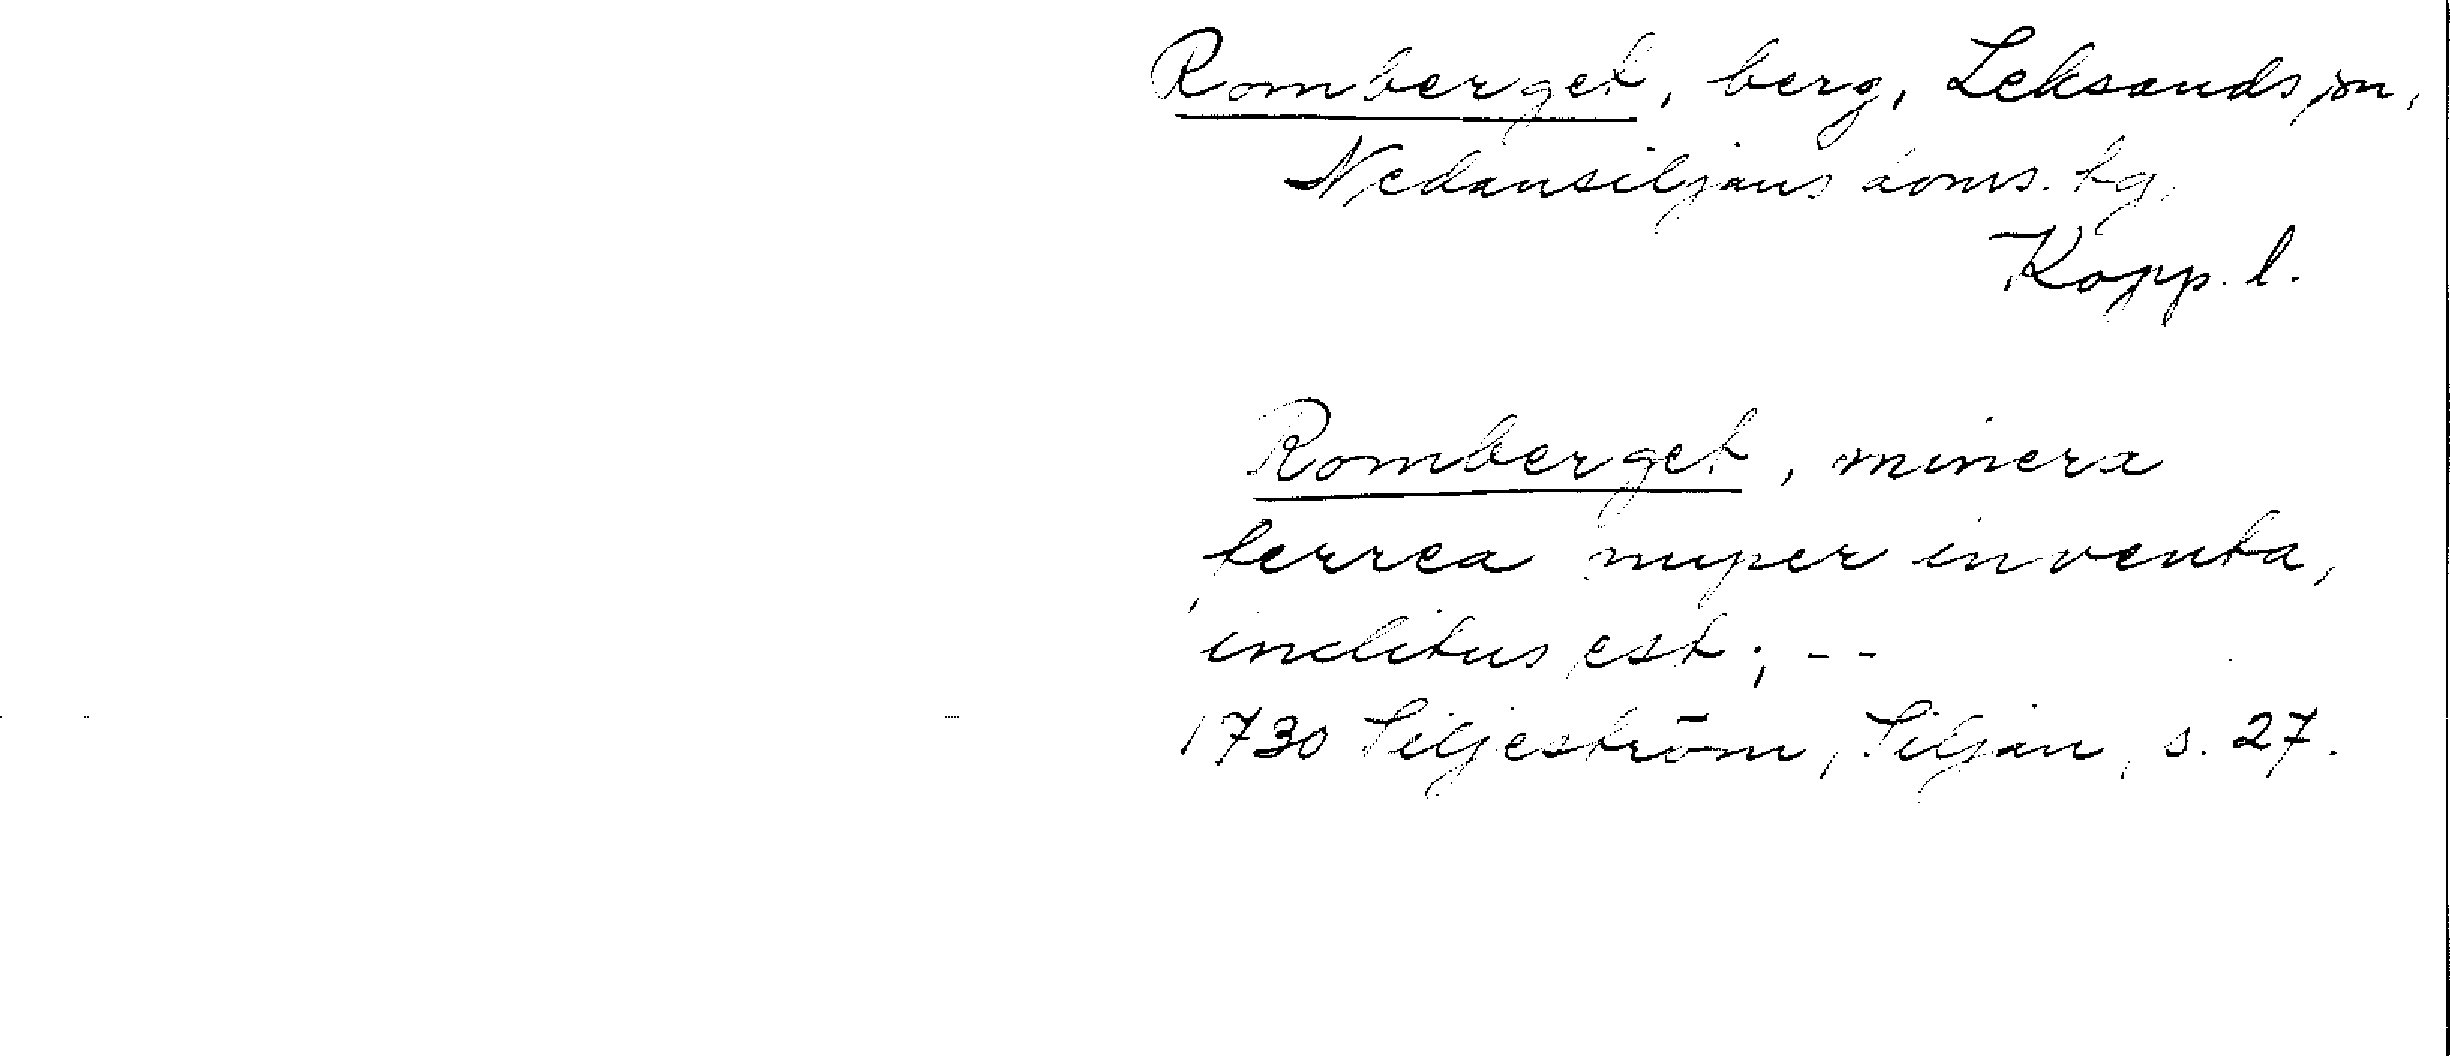 Romberget, berg, Leksands sn,
Nedansiljans doms. tg,
Kopp. l.
Romberget, minera
ferrea nuper inventa,
inclitus est; --
1730 Siljeström, Siljan, s. 27.